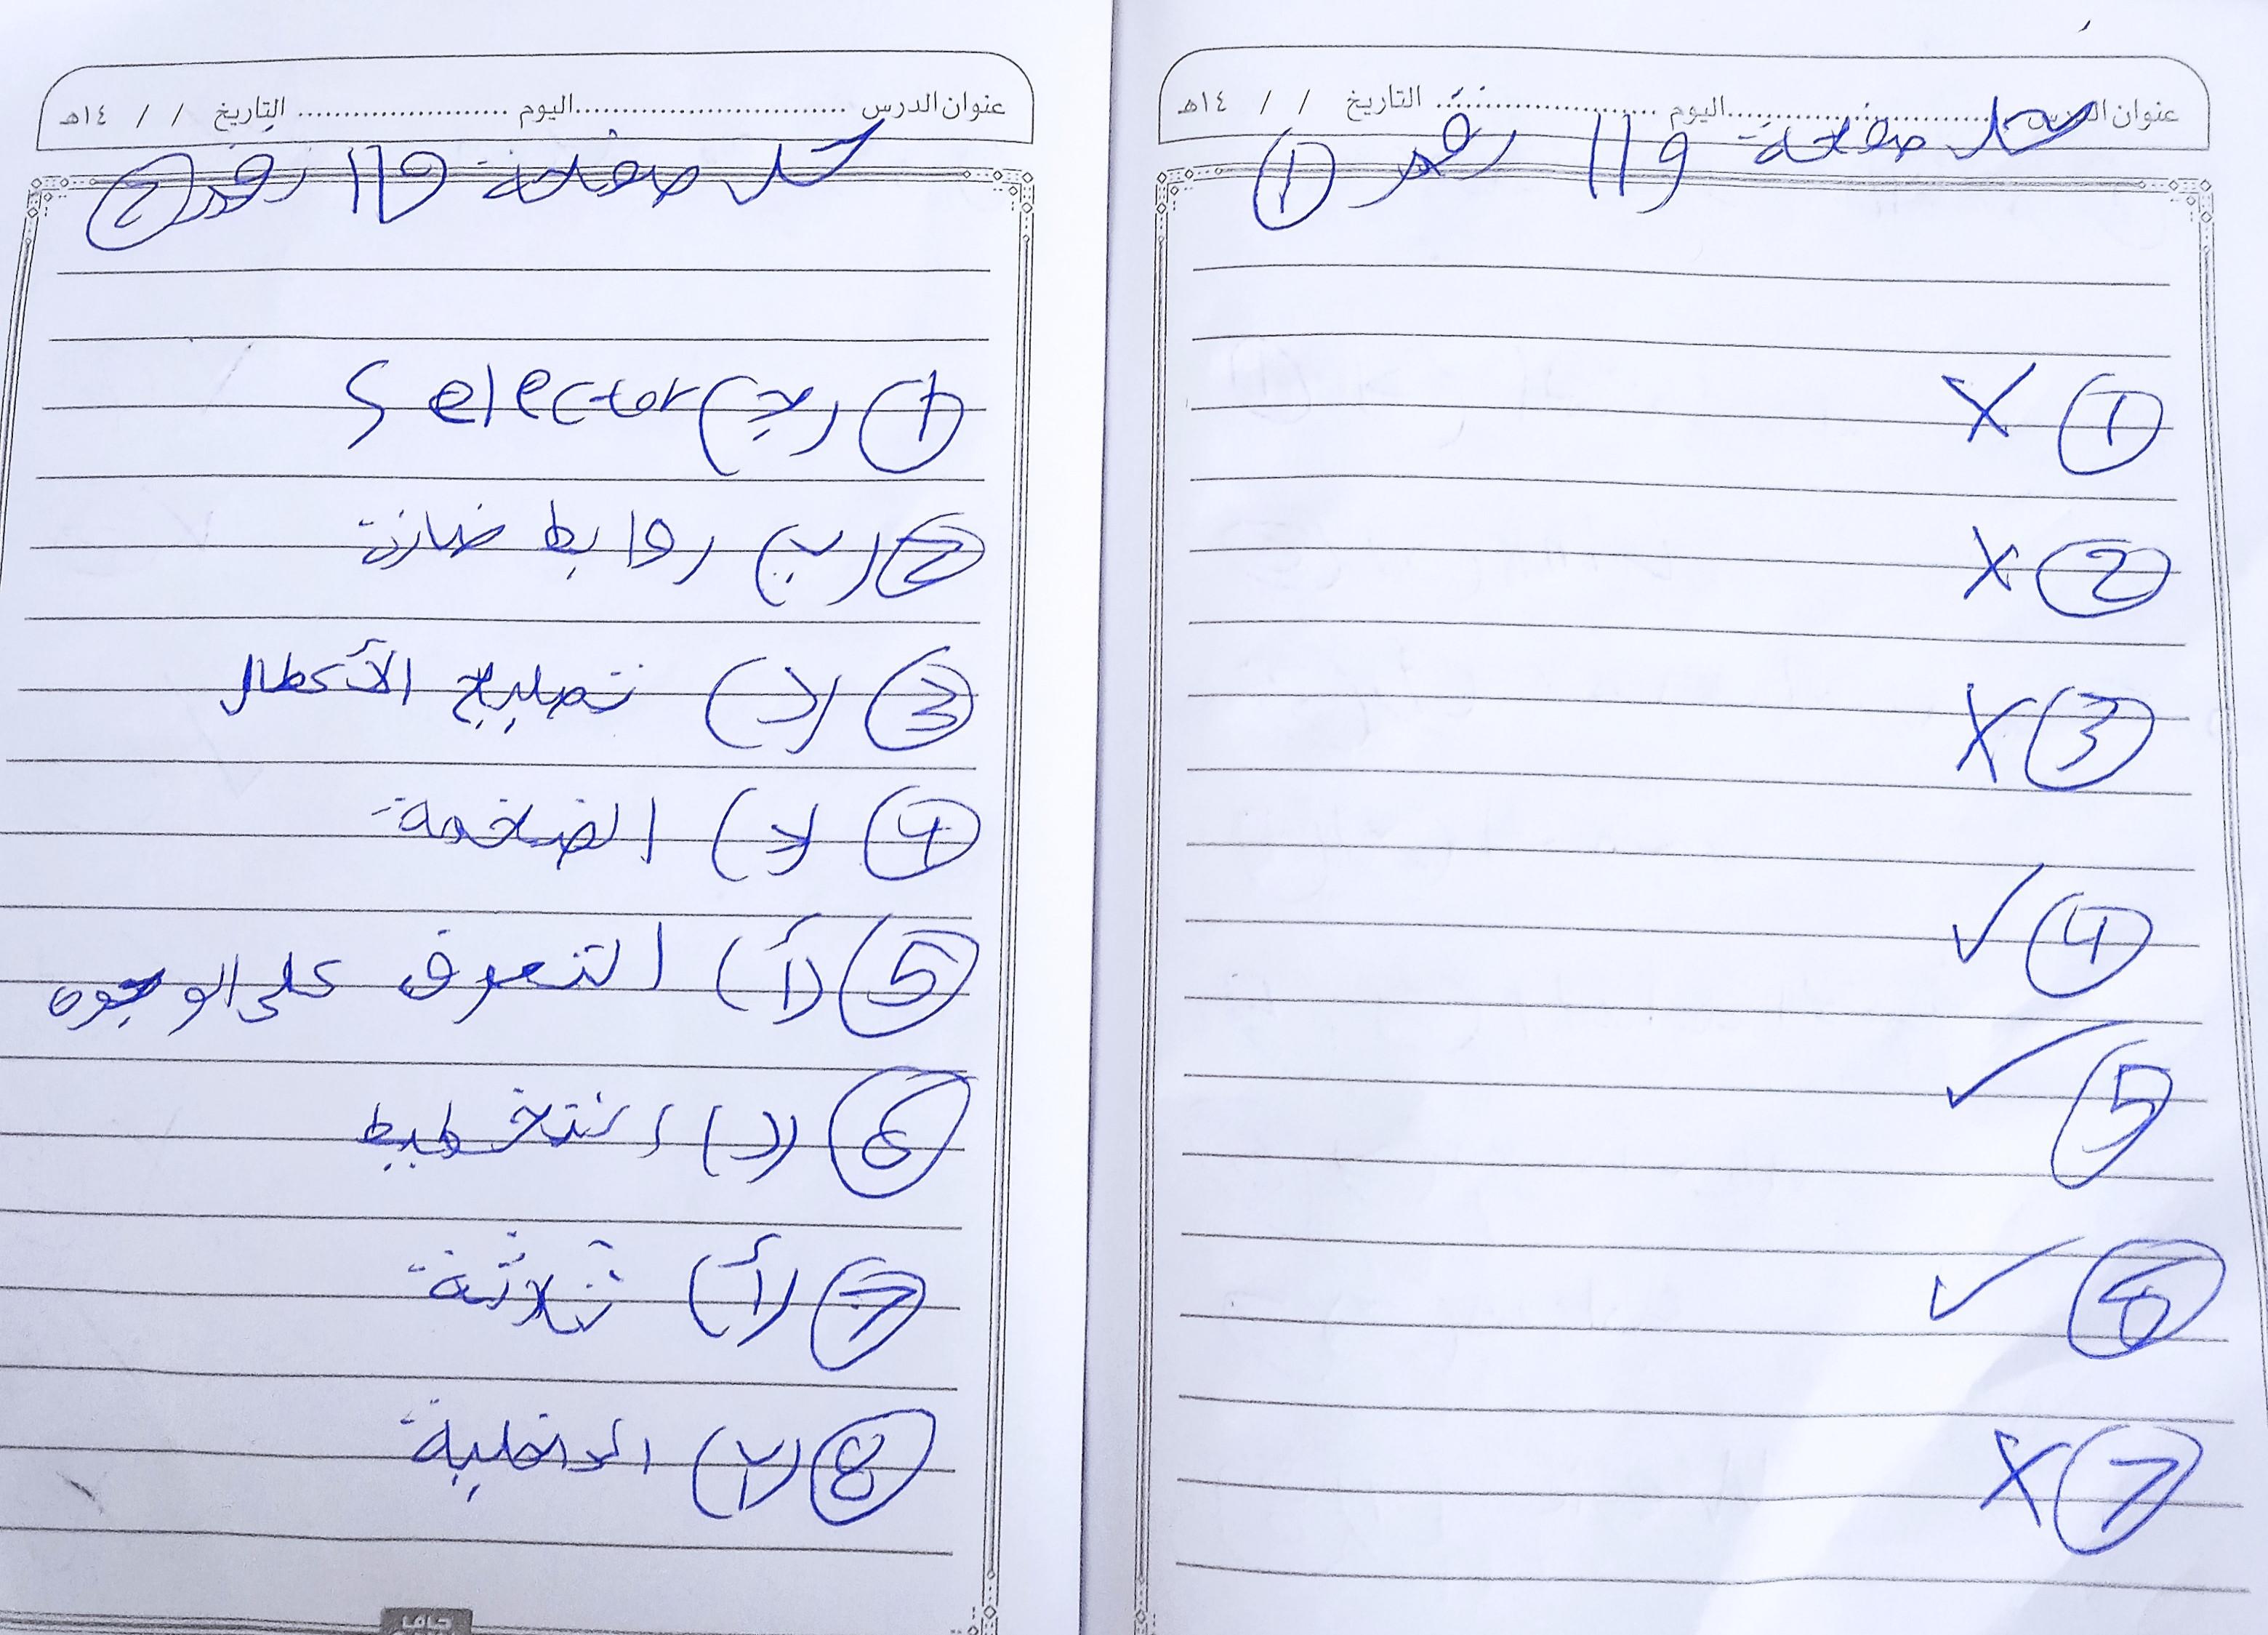 عنوان الدرس ........................ اليوم ........................ التاريخ / / ١٤هـ
حل صفحة 119 رقم ①
① X
② X
③ X
④ ✓
⑤ ✓
⑥ ✓
⑦ X
عنوان الدرس ........................ اليوم ........................ التاريخ / / ١٤هـ
حل صفحة 119 رقم ②
① (ج) Selector
② (ب) روابط ضارة
③ (د) تصليح الأعطال
④ (ج) الضخمة
⑤ (أ) التعرف على الوجوه
⑥ (د) التخطيط
⑦ (أ) ثلاثة
⑧ (ب) الداخلية